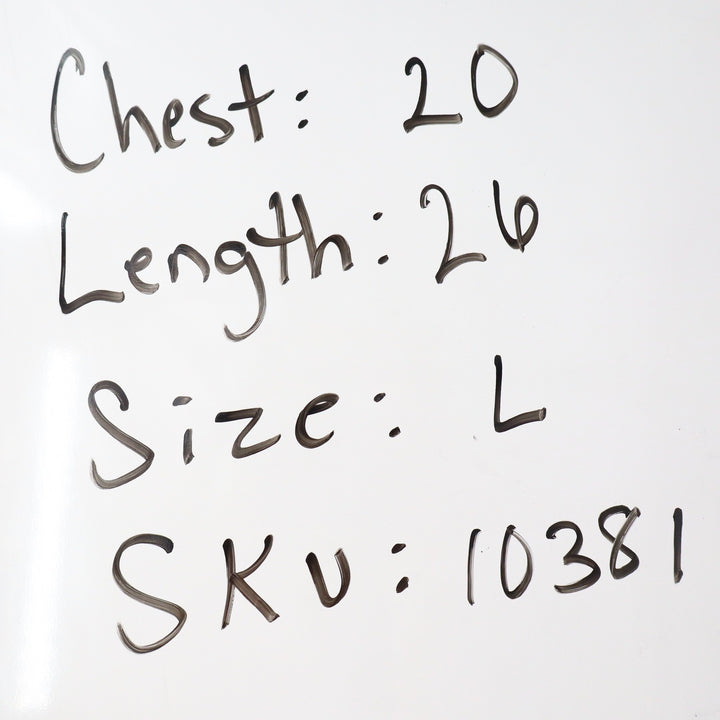 Chest: 20
Length: 26
Size: L
SKU: 10381